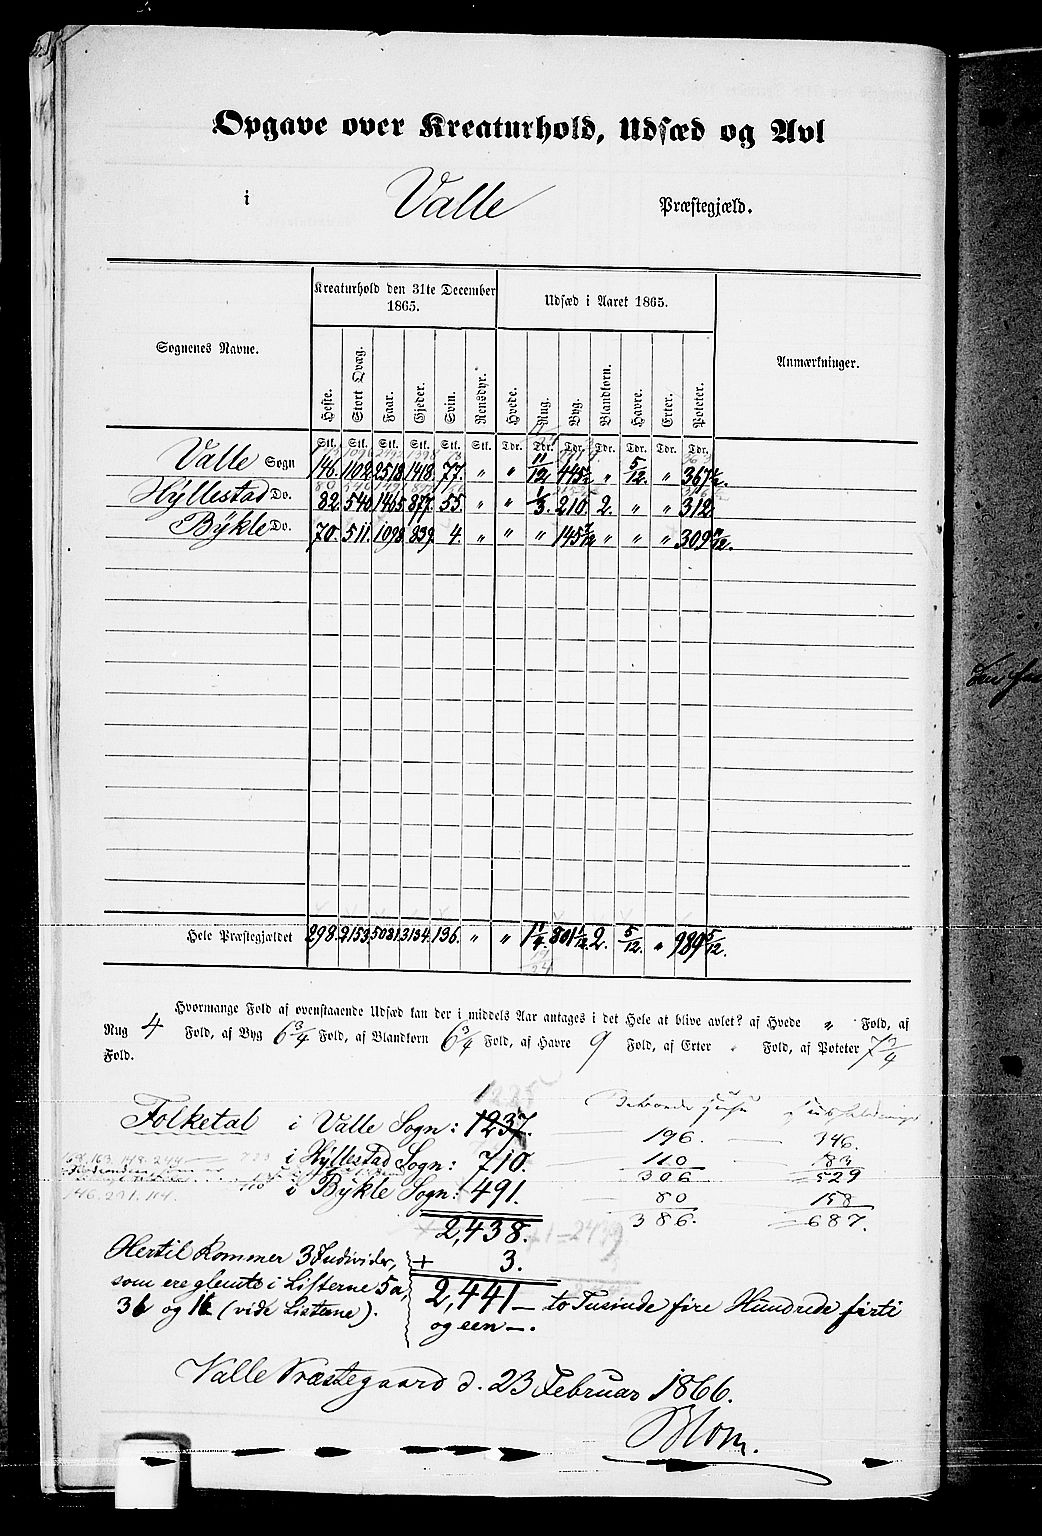 Opgave over Kreaturhold, Udsæd og Avl
i Valle Præstegjæld.
Sognenes Navne. Kreaturhold den 31te December 1865. Udsæd i Aaret 1865. Anmærkninger.
Heste. Stort Qvæg. Faar. Gjeder. Svin. Rensdyr. Hvede. Rug. Byg. Blandkorn. Havre. Erter. Poteter.
Stk. Stk. Stk. Stk. Stk. Stk. Tdr. Tdr. Tdr. Tdr. Tdr. Tdr. Tdr.
Valle Sogn 146. 1102 2518 1418. 77. " " 11/12 445 " 5/12. " 367½.
Hyllestad Do. 82. 540 1465 877. 55. " " 1/3. 210. 2. " " 312
Bykle Do. 70. 511. 1098 839. 4. " " " 145 " " " 309 11/12.
Hele Præstegjældet 298. 2153. 5081 3134. 136. " " 1¼. 801 1/12. 2. 5/12. " 989 5/12.
Hvormange Fold af ovenstaaende Udsæd kan der i middels Aar antages i det Hele at blive avlet? af Hvede " Fold, af
Rug 4 Fold, af Byg 6¾ Fold, af Blandkorn 6¾ Fold, af Havre 9 Fold, af Erter Fold, af Poteter 7¾
Fold.
Folketal i Valle Sogn: 1237. 196. 346.
i Hyllestad Sogn: 710. 110 183
306 529
i Bykle Sogn: 491. 80 158
2,438. 386. 687.
Hertil kommer 3 Individer, + 3.
som ere glemte i Listerne 5a, 2,441 — to Tusinde fire Hundrede firti
3b og 1b (vide Listerne). og een —.
Valle Præstegaard d. 23 Februar 1866.
Blom.